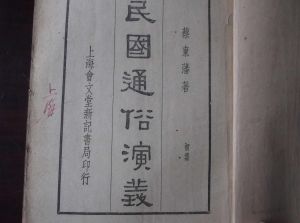 蔡東藩著
初集
民國通俗演義
上海會文堂新記書局印行